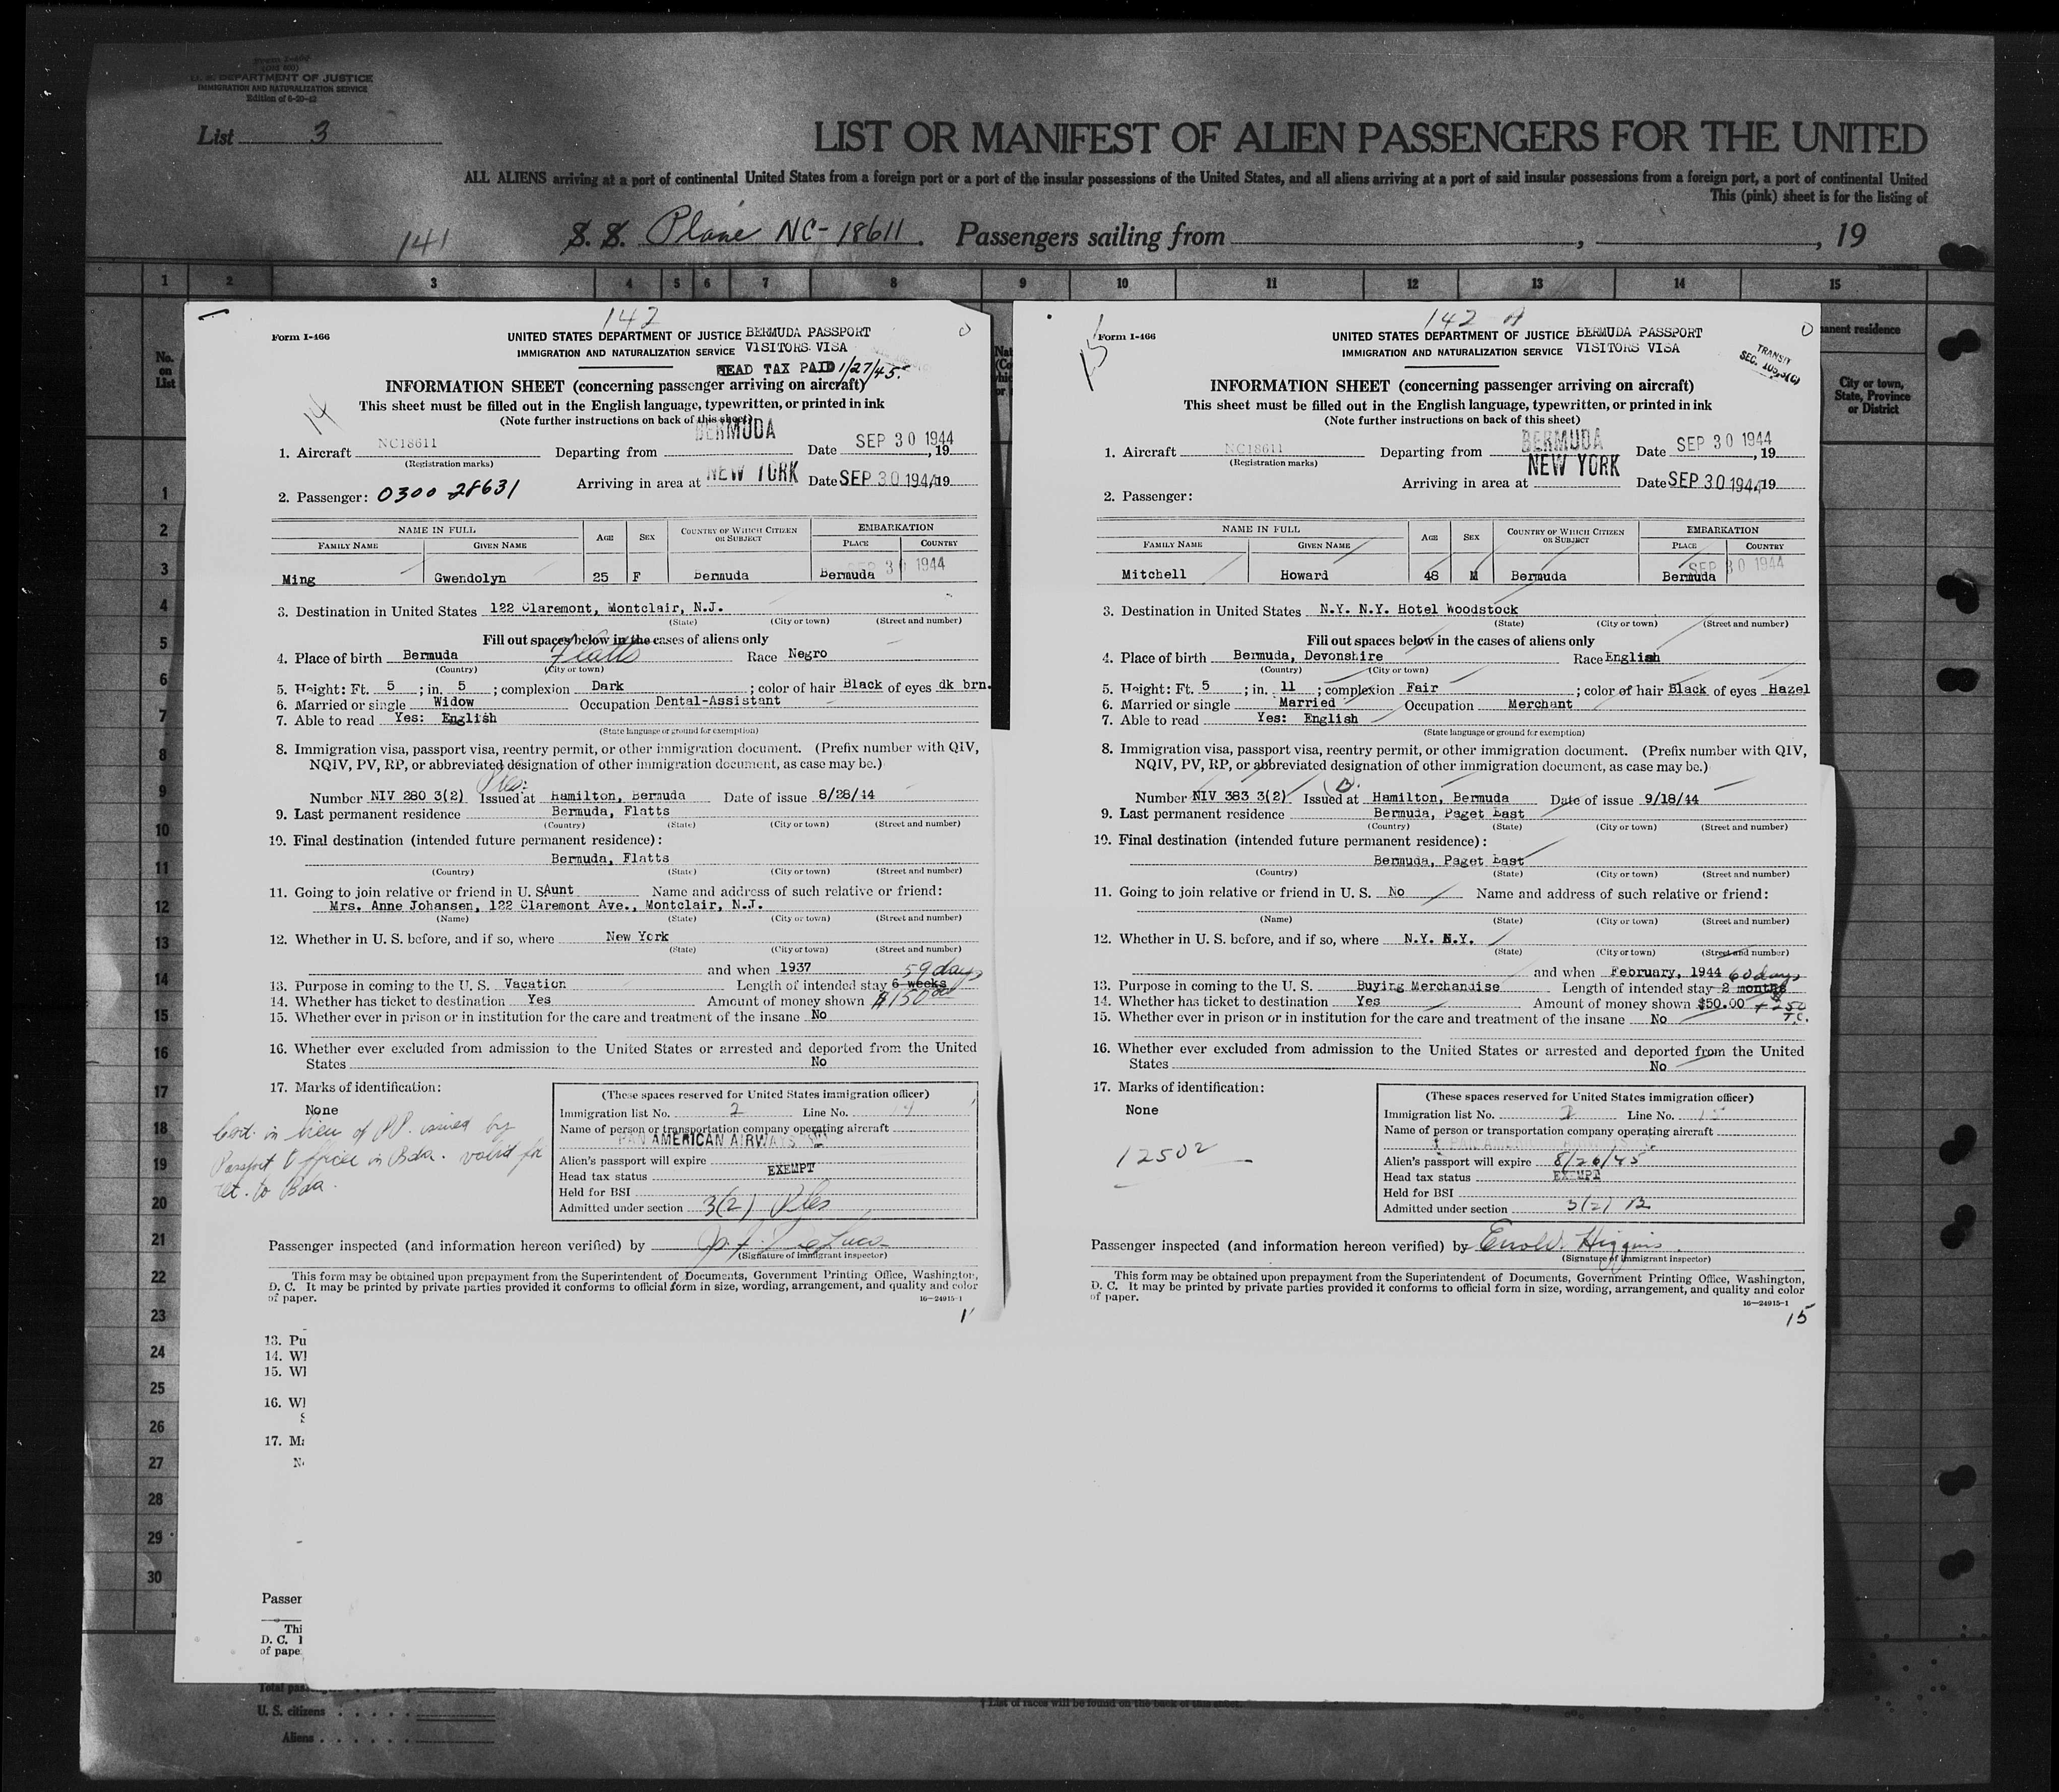 Form I-466
U. S. DEPARTMENT OF JUSTICE
IMMIGRATION AND NATURALIZATION SERVICE
Edition of 6-20-42
List 3
LIST OR MANIFEST OF ALIEN PASSENGERS FOR THE UNITED
ALL ALIENS arriving at a port of continental United States from a foreign port or a port of the insular possessions of the United States, and all aliens arriving at a port of said insular possessions from a foreign port, a port of continental United
This (pink) sheet is for the listing of
141 S. S. Plane NC-18611. Passengers sailing from , , 19
1 2 3 4 5 6 7 8 9 10 11 12 13 14 15
No. on List
1
2
3
4
5
6
7
8
9
10
11
12
13
14
15
16
17
18
19
20
21
22
23
24
25
26
27
28
29
30
142
Form I-466
UNITED STATES DEPARTMENT OF JUSTICE BERMUDA PASSPORT
IMMIGRATION AND NATURALIZATION SERVICE VISITORS VISA
HEAD TAX PAID 1/27/45.
14
INFORMATION SHEET (concerning passenger arriving on aircraft)
This sheet must be filled out in the English language, typewritten, or printed in ink
(Note further instructions on back of this sheet)
1. Aircraft NC18611 Departing from BERMUDA Date SEP 30 1944, 19
(Registration marks)
Arriving in area at NEW YORK Date SEP 30 1944, 19
2. Passenger: 0300 28631
NAME IN FULL AGE SEX COUNTRY OF WHICH CITIZEN OR SUBJECT EMBARKATION
FAMILY NAME GIVEN NAME PLACE COUNTRY
SEP 30 1944
Ming Gwendolyn 25 F Bermuda Bermuda
3. Destination in United States 122 Claremont, Montclair, N.J.
(State) (City or town) (Street and number)
Fill out spaces below in the cases of aliens only
4. Place of birth Bermuda Flatts Race Negro
(Country) (City or town)
5. Height: Ft. 5 ; in. 5 ; complexion Dark ; color of hair Black of eyes dk brn.
6. Married or single Widow Occupation Dental-Assistant
7. Able to read Yes: English
(State language or ground for exemption)
8. Immigration visa, passport visa, reentry permit, or other immigration document. (Prefix number with QIV,
NQIV, PV, RP, or abbreviated designation of other immigration document, as case may be.)
Number NIV 280 3(2) Issued at Hamilton, Bermuda Date of issue 8/28/44
9. Last permanent residence Bermuda, Flatts
(Country) (State) (City or town) (Street and number)
10. Final destination (intended future permanent residence):
Bermuda, Flatts
(Country) (State) (City or town) (Street and number)
11. Going to join relative or friend in U. S. Aunt Name and address of such relative or friend:
Mrs. Anne Johansen, 122 Claremont Ave., Montclair, N.J.
(Name) (State) (City or town) (Street and number)
12. Whether in U. S. before, and if so, where New York
(State) (City or town) (Street and number)
and when 1937 59 days
13. Purpose in coming to the U. S. Vacation Length of intended stay 6 weeks
14. Whether has ticket to destination Yes Amount of money shown $150.00
15. Whether ever in prison or in institution for the care and treatment of the insane No
16. Whether ever excluded from admission to the United States or arrested and deported from the United
States No
17. Marks of identification:
None
Cert. in lieu of PP. issued by
Passport Officer in Bda. valid for
ret. to Bda.
(These spaces reserved for United States immigration officer)
Immigration list No. 2 Line No. 14
Name of person or transportation company operating aircraft
PAN AMERICAN AIRWAYS
Alien's passport will expire
Head tax status EXEMPT
Held for BSI
Admitted under section 3(2) Ples
Passenger inspected (and information hereon verified) by
(Signature of immigrant inspector)
This form may be obtained upon prepayment from the Superintendent of Documents, Government Printing Office, Washington,
D. C. It may be printed by private parties provided it conforms to official form in size, wording, arrangement, and quality and color
of paper. 16—24915-1
142 A
15
Form I-466
UNITED STATES DEPARTMENT OF JUSTICE BERMUDA PASSPORT
IMMIGRATION AND NATURALIZATION SERVICE VISITORS VISA
TRANSIT
SEC. 105.3(C)
INFORMATION SHEET (concerning passenger arriving on aircraft)
This sheet must be filled out in the English language, typewritten, or printed in ink
(Note further instructions on back of this sheet)
1. Aircraft NC18611 Departing from BERMUDA Date SEP 30 1944, 19
(Registration marks)
Arriving in area at NEW YORK Date SEP 30 1944, 19
2. Passenger:
NAME IN FULL AGE SEX COUNTRY OF WHICH CITIZEN OR SUBJECT EMBARKATION
FAMILY NAME GIVEN NAME PLACE COUNTRY
SEP 30 1944
Mitchell Howard 48 M Bermuda Bermuda
3. Destination in United States N.Y. N.Y. Hotel Woodstock
(State) (City or town) (Street and number)
Fill out spaces below in the cases of aliens only
4. Place of birth Bermuda, Devonshire Race English
(Country) (City or town)
5. Height: Ft. 5 ; in. 11 ; complexion Fair ; color of hair Black of eyes Hazel
6. Married or single Married Occupation Merchant
7. Able to read Yes: English
(State language or ground for exemption)
8. Immigration visa, passport visa, reentry permit, or other immigration document. (Prefix number with QIV,
NQIV, PV, RP, or abbreviated designation of other immigration document, as case may be.)
B.
Number NIV 383 3(2) Issued at Hamilton, Bermuda Date of issue 9/18/44
9. Last permanent residence Bermuda, Paget East
(Country) (State) (City or town) (Street and number)
10. Final destination (intended future permanent residence):
Bermuda, Paget East
(Country) (State) (City or town) (Street and number)
11. Going to join relative or friend in U. S. No Name and address of such relative or friend:
(Name) (State) (City or town) (Street and number)
12. Whether in U. S. before, and if so, where N.Y. N.Y.
(State) (City or town) (Street and number)
and when February, 1944 60 days
13. Purpose in coming to the U. S. Buying Merchandise Length of intended stay 2 months
14. Whether has ticket to destination Yes Amount of money shown $50.00 + $250 T.C.
15. Whether ever in prison or in institution for the care and treatment of the insane No
16. Whether ever excluded from admission to the United States or arrested and deported from the United
States No
17. Marks of identification:
None
12502
(These spaces reserved for United States immigration officer)
Immigration list No. 2 Line No. 15
Name of person or transportation company operating aircraft
PAN AMERICAN AIRWAYS
Alien's passport will expire 8/26/45
Head tax status EXEMPT
Held for BSI
Admitted under section 3(2) B
Passenger inspected (and information hereon verified) by Errol W. Higgins
(Signature of immigrant inspector)
This form may be obtained upon prepayment from the Superintendent of Documents, Government Printing Office, Washington,
D. C. It may be printed by private parties provided it conforms to official form in size, wording, arrangement, and quality and color
of paper. 16—24915-1
15
manent residence
City or town, State, Province or District
13. Pu
14. Wl
15. Wl
16. Wl
17. Ma
Passer
Thi
D. C. I
of pape
Total pas
U. S. citizens
Aliens
† List of races will be found on the back of this sheet.